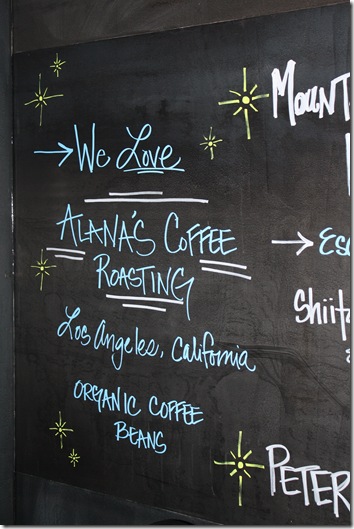 → We Love
ALANA'S COFFEE
ROASTING
Los Angeles, California
ORGANIC COFFEE
BEANS
→
PETER